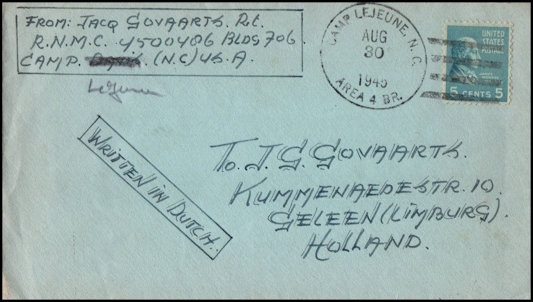 FROM: JACQ GOVAARTS. Pvt.
R.N.M.C. 4500406 BLDG 706.
CAMP. (N.C) U.S.A.
Lejeune
CAMP LEJEUNE, N.C.
AUG
30
1945
AREA 4 BR.
UNITED
STATES
POSTAGE
5 CENTS 5
WRITTEN IN DUTCH.
To. J. G. GOVAARTS.
KUMMENAEDESTR. 10.
GELEEN (LIMBURG).
HOLLAND.